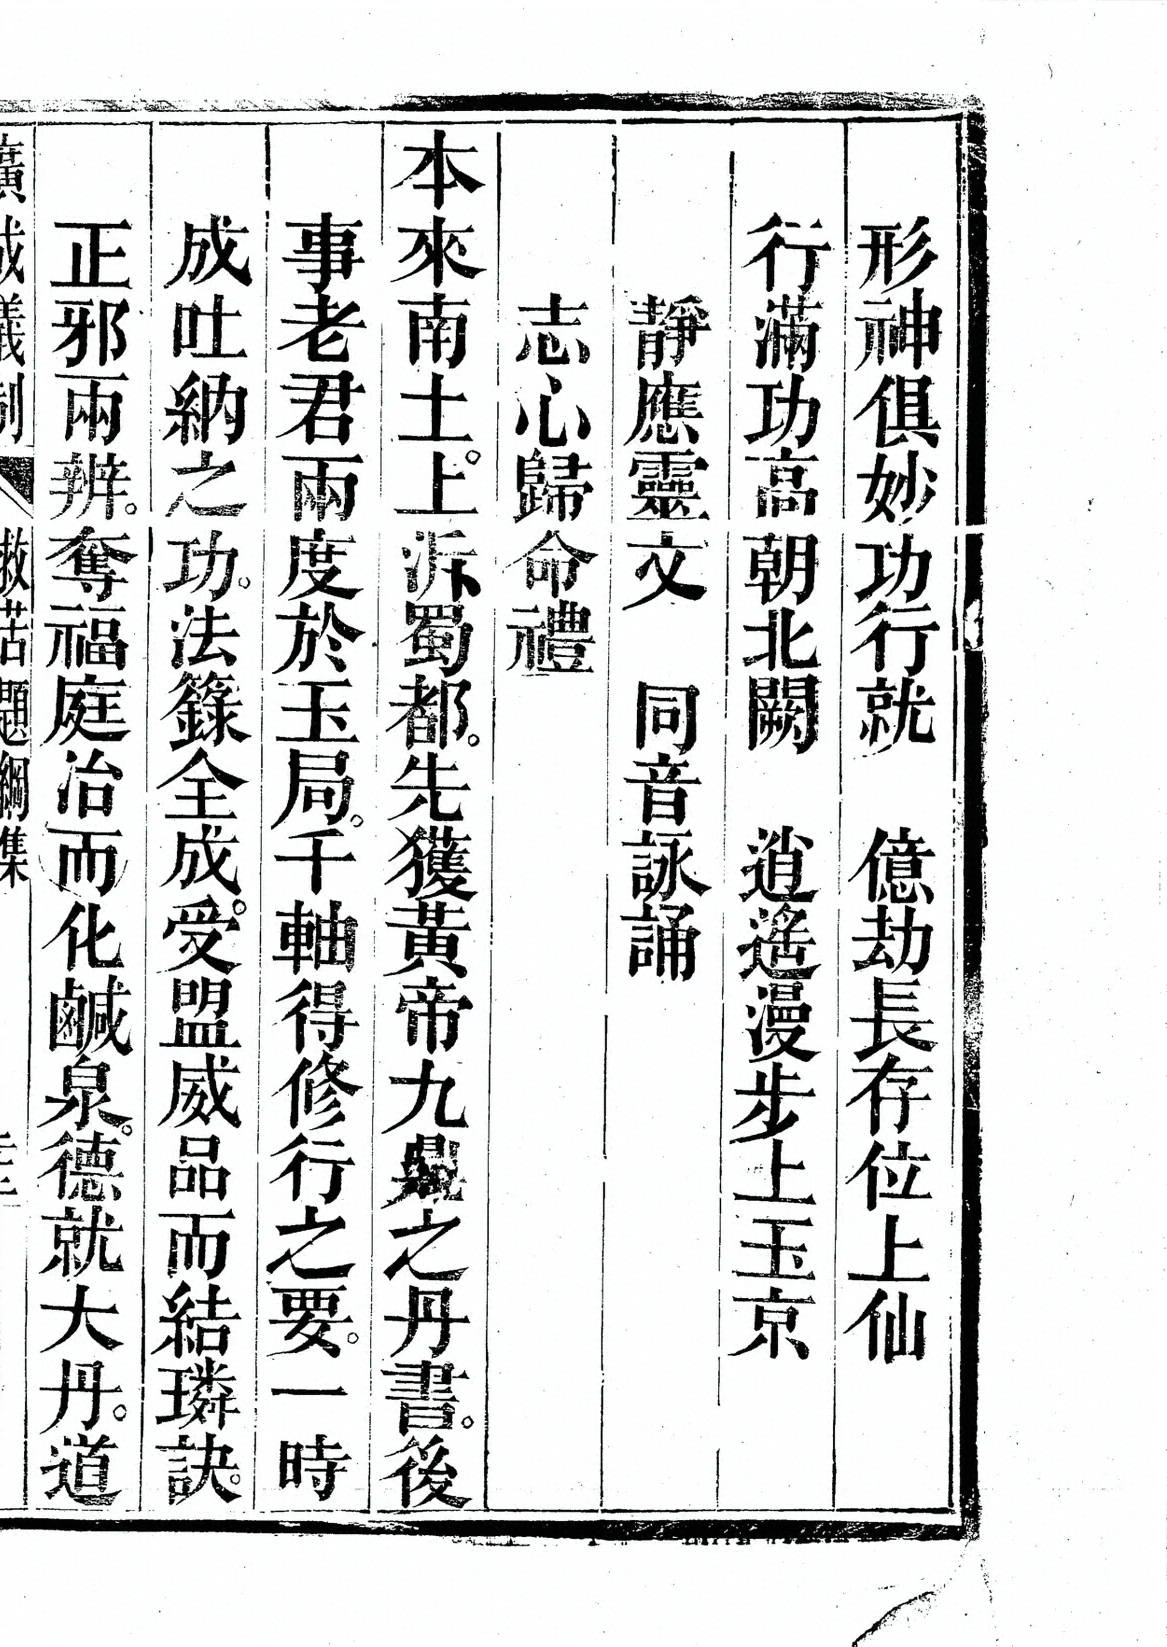 形神俱妙功行就　億劫長存位上仙
行滿功高朝北闕　逍遙漫步上玉京
靜應靈文　同音詠誦
志心歸命禮
本來南土。上泝蜀都。先獲黃帝九鼎之丹書。後
事老君兩度於玉局。千軸得修行之要。一時
成吐納之功。法籙全成。受盟威品而結璘訣。
正邪兩辨。奪福庭治而化鹹泉。德就大丹。道
廣成儀制　救苦題綱集